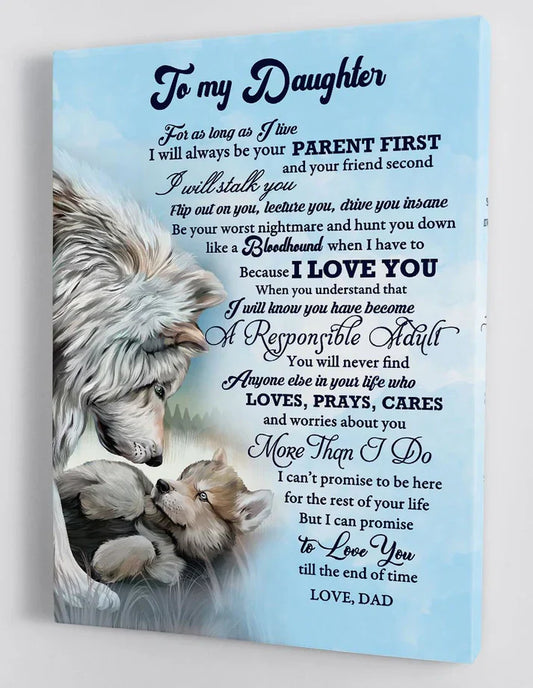 To my Daughter
For as long as I live
I will always be your PARENT FIRST
and your friend second
I will stalk you
Flip out on you, lecture you, drive you insane
Be your worst nightmare and hunt you down
like a Bloodhound when I have to
Because I LOVE YOU
When you understand that
I will know you have become
A Responsible Adult
You will never find
Anyone else in your life who
LOVES, PRAYS, CARES
and worries about you
More Than I Do
I can't promise to be here
for the rest of your life
But I can promise
to Love You
till the end of time
LOVE, DAD